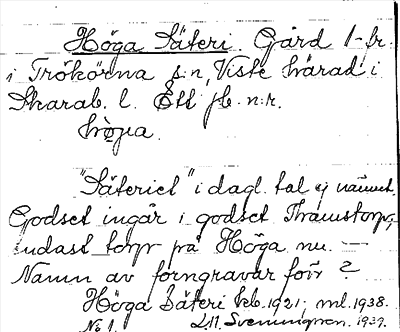 Höga Säteri. Gård 1-fr.
i Trökörna s:n, Viste härad i
Skarab. l. Ett jb. n:r.
hø̀ga.
"Säteriet" i dagl. tal ej nämnt.
Godset ingår i godset Thamstorp,
endast torp på Höga nu. —
Namn av forngravar förr?
Höga Säteri Geb. 1921; ml. 1938.
No 1. L.M. Svenningson. 1939.